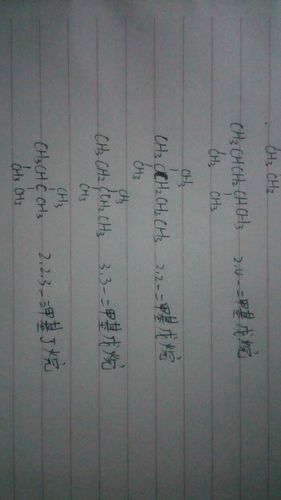 CH3 CH3
CH3CHCH2CHCH3 2,4-二甲基戊烷
CH3 CH3
CH3
CH3CCH2CH2CH3 2,2-二甲基戊烷
CH3
CH3
CH3CH2CCH2CH3 3,3-二甲基戊烷
CH3
CH3
CH3CHCCH3 2,2,3-三甲基丁烷
CH3 CH3